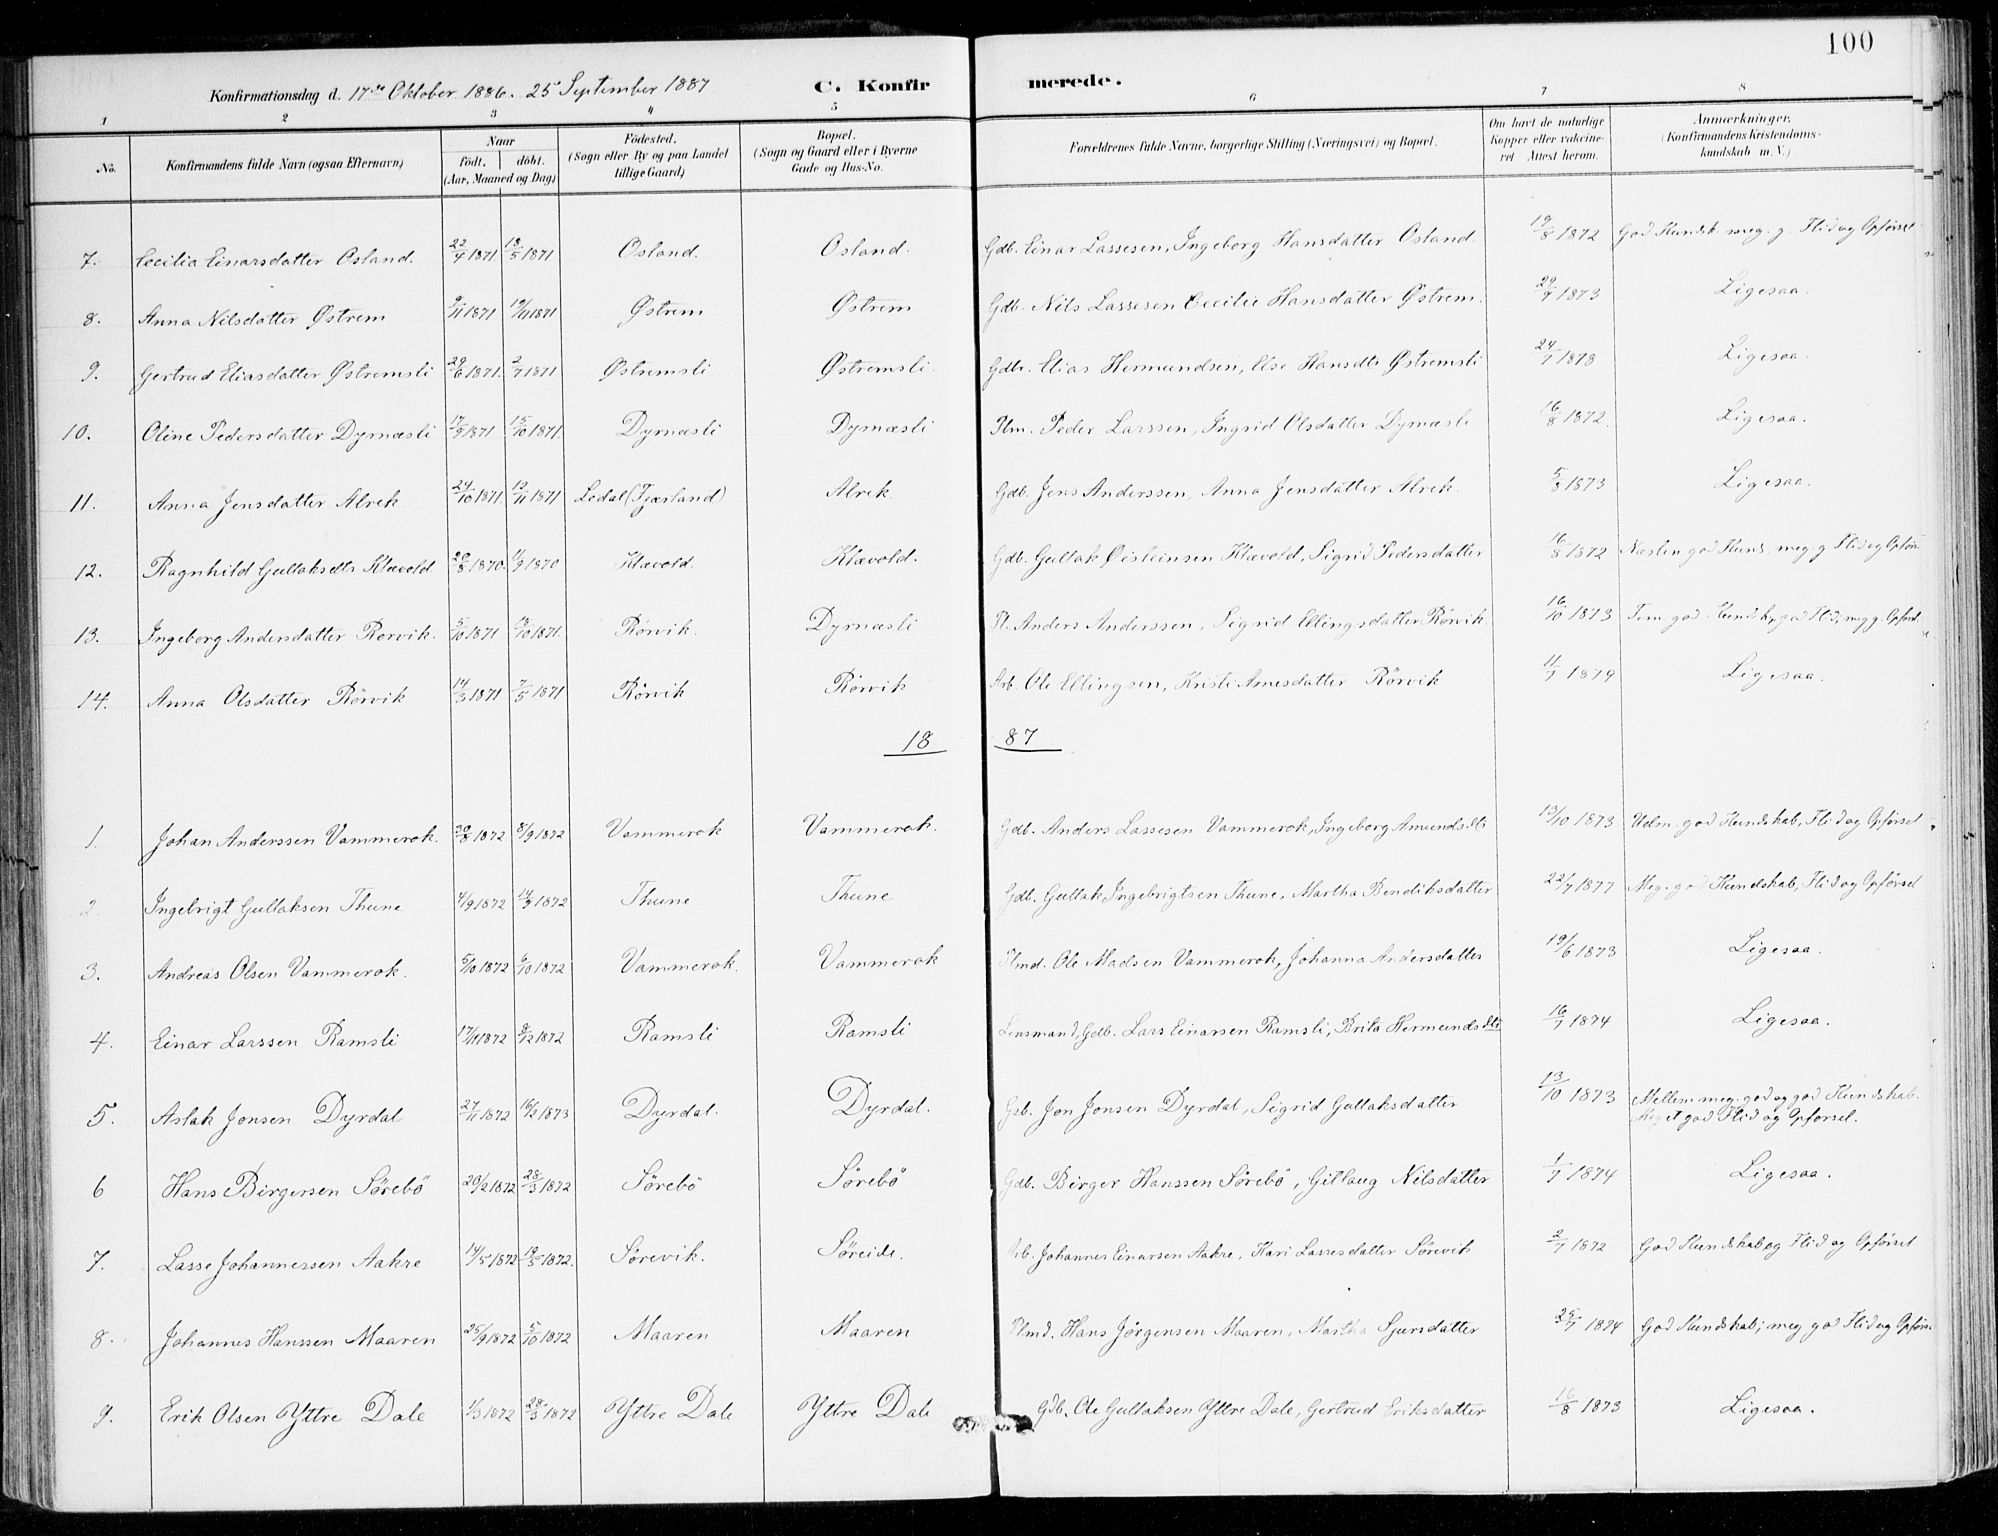 100
Konfirmationsdag d. 17de Oktober 1886. 25 September 1887 C. Konfirmerede.
1 2 3 4 5 6 7 8
No. Konfirmandens fulde Navn (ogsaa Efternavn) Naar födt, döbt. (Aar, Maaned og Dag) Födested. (Sogn eller By og paa Landet tillige Gaard) Bopæl. (Sogn og Gaard eller i Byerne Gade og Hus-No. Forældrenes fulde Navne, borgerlige Stilling (Næringsvei) og Bopæl. Om havt de naturlige Kopper eller vakcineret Attest herom. Anmærkninger. (Konfirmandens Kristendomskundskab m. V.)
7. Cecilia Einarsdatter Osland. 22/4 1871 18/5 1871 Osland. Osland. Gdb. Einar Lassesen, Ingeborg Hansdatter Osland. 19/8 1872 God Kundsk. meg. g. Flid og Opførsel
8. Anna Nilsdatter Østrem 9/11 1871 19/11 1871 Østrem Østrem Gdb. Nils Lassesen Cecilie Hansdatter Østrem. 29/9 1873 Ligesaa.
9. Gertrud Eliasdatter Østremsli 29/6 1871. 2/7 1871 Østremsli Østremsli. Gdbr. Elias Hermundsen, Else Hansdtr Østremsli 24/7 1878 Ligesaa.
10. Oline Pedersdatter Dyrnæsli 17/9 1871 15/10 1871. Dyrnæsli Dyrnæsli Plm. Peder Larssen, Ingrid Olsdatter Dyrnæsli 16/8 1872. Ligesaa.
11. Anna Jensdatter Alrek 24/10 1871. 12/11 1871 Ledal (Fjærland) Alrek. Gdb. Jens Anderssen, Anna Jensdatter Alrek. 5/8 1873 Ligesaa.
12. Ragnhild Gullaksdtr Klævold 20/8 1870. 11/9 1870 Klævold. Klævold. Gdb. Gullak Øisteinsen Klævold, Sigrid Pedersdatter 16/8 1872 Næsten god Kunds. meg. g Flid og Opfør.
13. Ingeborg Andersdatter Rørvik. 5/10 1871 8/10 1871. Rörvik. Dyrnæsli Pl. Anders Anderssen, Sigrid Ellingsdatter Rörvik. 16/10 1873 Tem. god Kundsk, god Flid, meg g. Opførs.
14. Anna Olsdatter Rörvik 14/3 1871 7/5 1871 Rörvik Rörvik Arb. Ole Ellingsen, Kristi Arnesdatter Rörvik 11/7 1879 Ligesaa.
18 87
1. Johan Anderssen Vammerok. 30/8 1872 8/9 1872 Vammerok Vammerok. Gdb. Anders Lassesen Vammerok, Ingeborg Amundsdtr 13/10 1873 Udm. god Kundskab, Flid og Opførsel
2. Ingebrigt Gullaksen Thune 4/9 1872 14/9 1872 Thune Thune Gdb. Gullak Ingebrigtsen Thune, Martha Bendiksdatter 22/7 1877 Meg. god Kundskab, Flid og Opførsel
3. Andreas Olsen Vammerok. 5/10 1872 6/10 1872 Vammerok. Vammerok Plmd. Ole Madsen Vammerok, Johanna Andersdatter 19/6 1873 Ligesaa.
4. Einar Larssen Ramsli 17/11 1872 8/12 1872 Ramsli Ramsli Lensmand, Gdb. Lars Einarsen Ramsli, Brita Hermundsdtr 16/7 1874 Ligesaa.
5. Aslak Jonsen Dyrdal 27/11 1872 16/2 1873 Dyrdal. Dyrdal. Gdb. Jon Jonsen Dyrdal, Sigrid Gullaksdatter 13/10 1873 Mellem meg. god og god Kundskab.
Meget god Flid og Opførsel.
6 Hans Birgersen Sörebö 20/2 1872 28/3 1872 Sörebö Sörebö Gdb. Birger Hanssen Sörebö, Gitlaug Nilsdatter 1/7 1874 Ligesaa.
7. Lasse Johannessen Aakre 14/5 1872 19/5 1872. Sörevik. Söreide. Arb. Johannes Einarsen Aakre, Kari Lassesdatter Sörevik 2/7 1872 God Kundskab og Flid og Opførsel
8. Johannes Hanssen Maaren 25/9 1872 5/10 1872 Maaren Maaren Plmd. Hans Jörgensen Maaren, Martha Sjursdatter 25/7 1874 God Kundskab; meg god Flid og Opførs.
9. Erik Olsen Yttre Dale 1/3 1872 28/3 1872 Yttre Dale Yttre Dale Gdb. Ole Gullaksen Yttre Dale, Gertrud Eriksdatter 16/8 1873 Ligesaa.